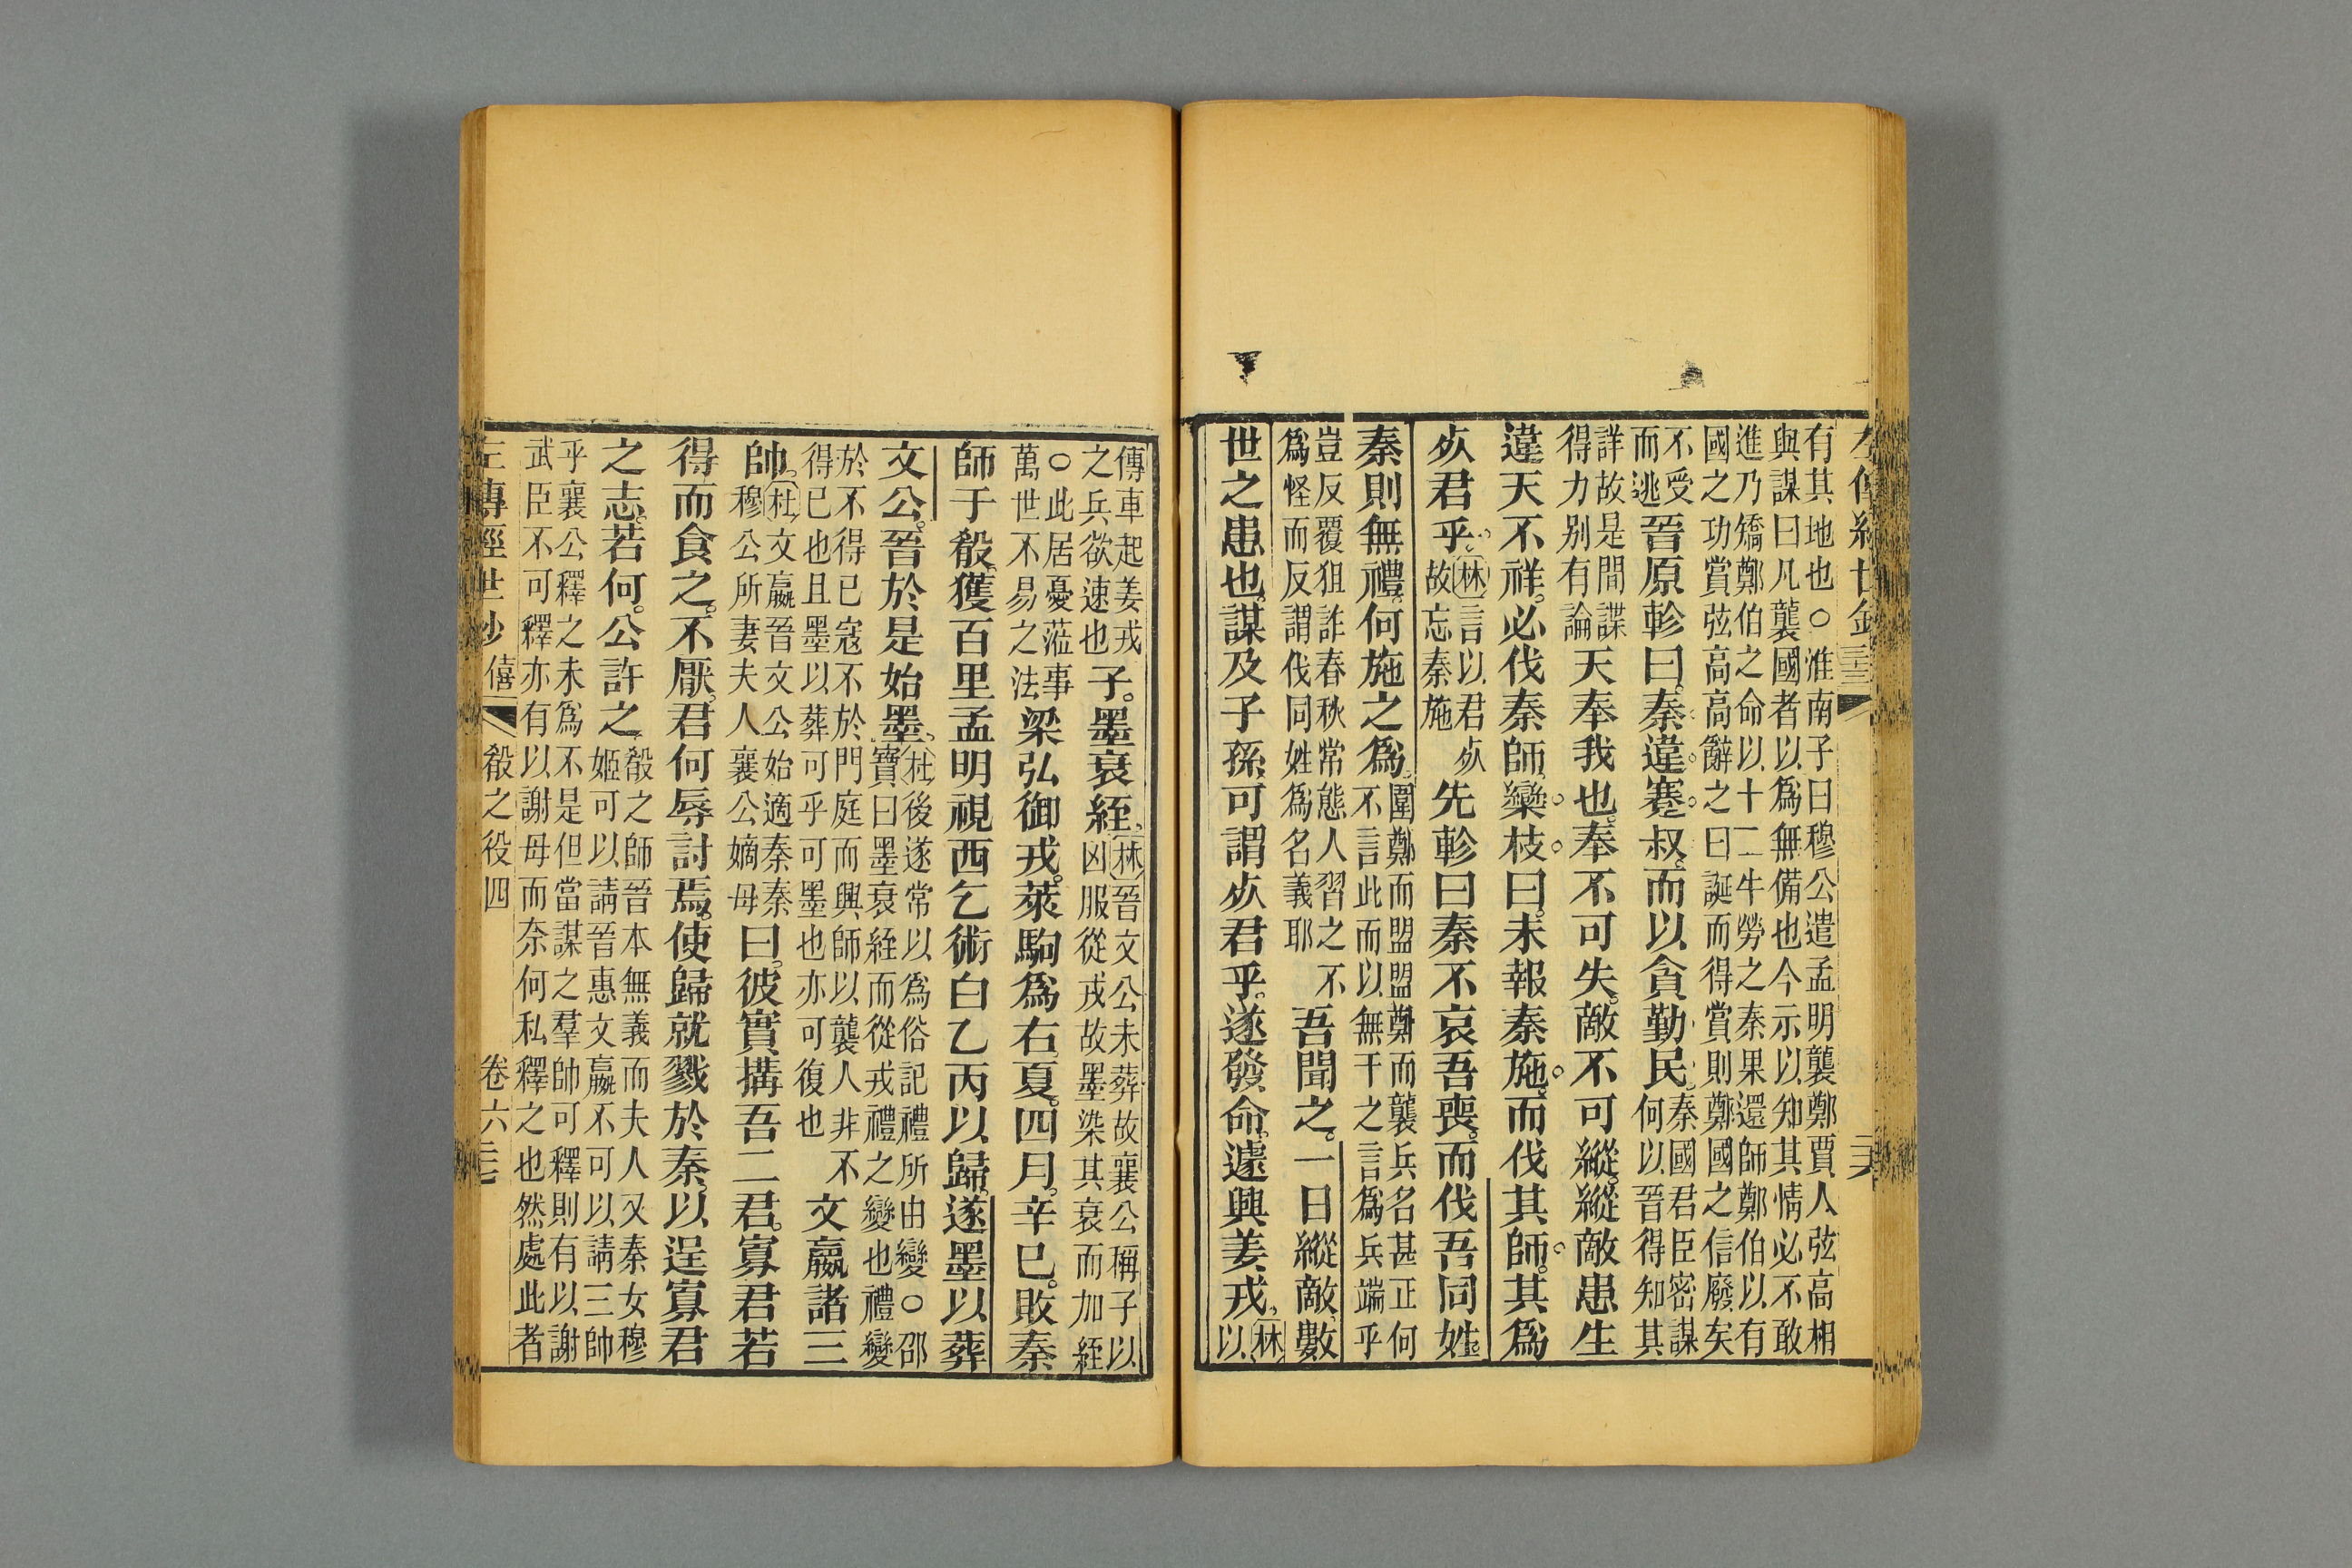 有其地也○淮南子曰穆公遣孟明襲鄭賈人弦高相
與謀曰凡襲國者以爲無備也今示以知其情必不敢
進乃矯鄭伯之命以十二牛勞之秦果還師鄭伯以有
國之功賞弦高高辭之曰誕而得賞則鄭國之信廢矣
不受
而逃
晉原軫曰。秦違蹇叔。而以貪勤民。
秦國君臣密謀
何以晉得知其
詳故是間諜
得力别有論
天奉我也。奉不可失。敵不可縱。縱敵患生
違天不祥。必伐秦師。欒枝曰。未報秦施。而伐其師。其爲
死君乎。
林言以君死
故忘秦施
先軫曰秦不哀吾喪。而伐吾同姓。
秦則無禮。何施之爲。
圍鄭而盟盟鄭而襲兵名甚正何
不言此而以無干之言爲兵端乎
豈反覆狙詐春秋常態人習之不
爲怪而反謂伐同姓爲名義耶
吾聞之。一日縱敵。數
世之患也。謀及子孫。可謂死君乎。遂發命。遽興姜戎。
林
以
傳車起姜戎
之兵欲速也
子。墨衰絰。
林晉文公未葬故襄公稱子以
凶服從戎故墨染其衰而加絰
○此居憂蒞事
萬世不易之法
梁弘御戎。萊駒爲右。夏。四月。辛巳。敗秦
師于殽。獲百里孟明視西乞術白乙丙以歸。遂墨以葬
文公。晉於是始墨。
杜後遂常以爲俗記禮所由變○邵
寶曰墨衰絰而從戎禮之變也禮變
於不得已寇不於門庭而興師以襲人非不
得已也且墨以葬可乎可墨也亦可復也
文嬴請三
帥。
杜文嬴晉文公始適秦秦
穆公所妻夫人襄公嫡母
曰。彼實搆吾二君。寡君若
得而食之。不厭。君何辱討焉。使歸就戮於秦。以逞寡君
之志。若何。公許之。
殽之師晉本無義而夫人又秦女穆
姬可以請晉惠文嬴不可以請三帥
乎襄公釋之未爲不是但當謀之羣帥可釋則有以謝
武臣不可釋亦有以謝母而奈何私釋之也然處此者
左傳經世鈔 僖 殽之役四 卷六